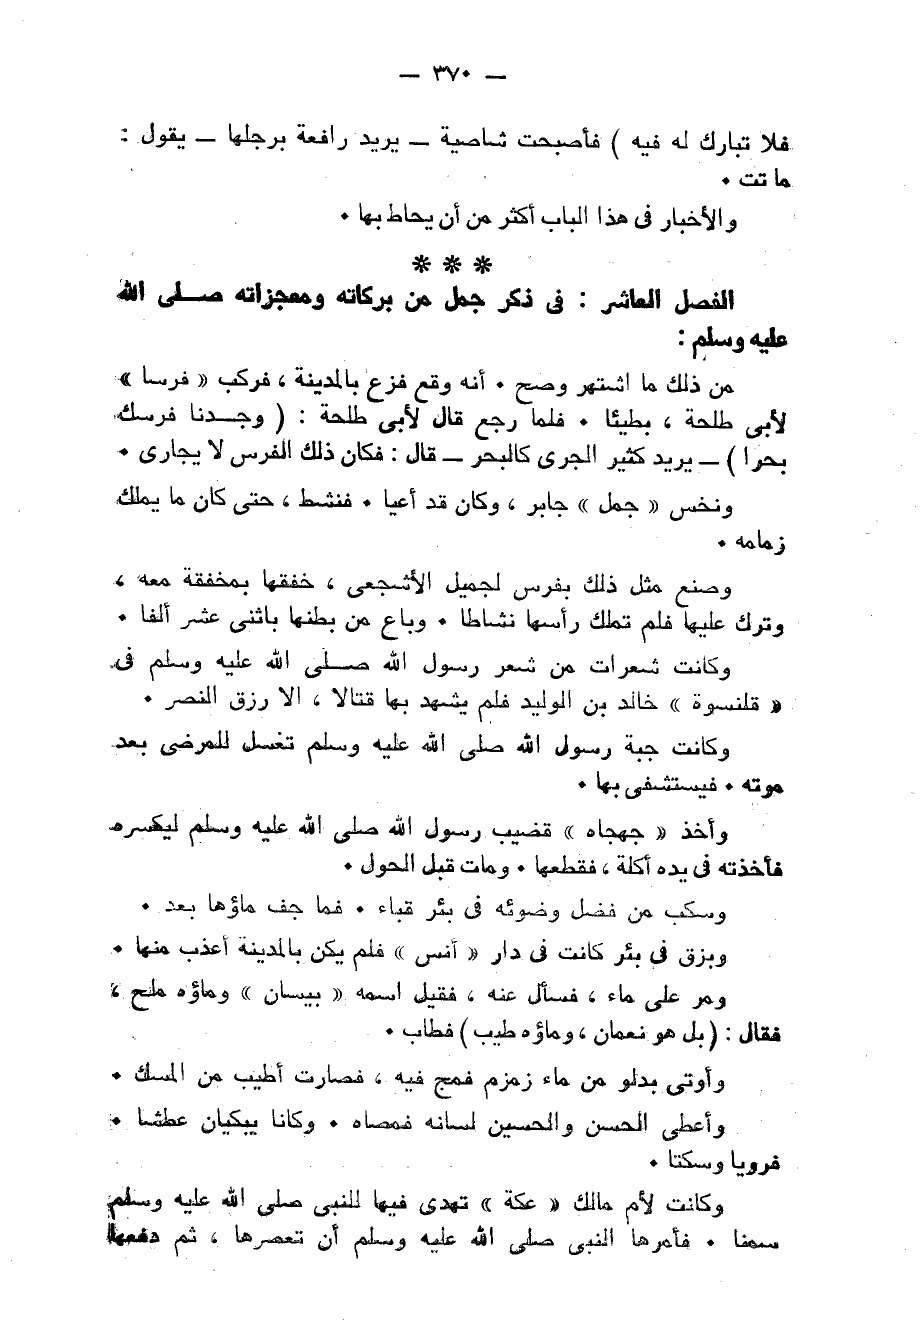 — ٣٧٠ —
فلا تبارك له فيه ) فأصبحت شاصية — يريد رافعة برجلها — يقول :
ماتت ٠
والأخبار فى هذا الباب أكثر من أن يحاط بها ٠
* * *
الفصل العاشر : فى ذكر جمل من بركاته ومعجزاته صلى الله
عليه وسلم :
من ذلك ما اشتهر وصح ٠ أنه وقع فزع بالمدينة ، فركب « فرسا »
لأبى طلحة ، بطيئا ٠ فلما رجع قال لأبى طلحة : ( وجدنا فرسك
بحرا ) — يريد كثير الجرى كالبحر — قال : فكان ذلك الفرس لا يجارى ٠
ونخس « جمل » جابر ، وكان قد أعيا ٠ فنشط ، حتى كان ما يملك
زمامه ٠
وصنع مثل ذلك بفرس لجميل الأشجعى ، خفقها بمخفقة معه ،
وترك عليها فلم تملك رأسها نشاطا ٠ وباع من بطنها باثنى عشر ألفا ٠
وكانت شعرات من شعر رسول الله صلى الله عليه وسلم فى
« قلنسوة » خالد بن الوليد فلم يشهد بها قتالا ، الا رزق النصر ٠
وكانت جبة رسول الله صلى الله عليه وسلم تغسل للمرضى بعد
موته ٠ فيستشفى بها ٠
وأخذ « جهجاه » قضيب رسول الله صلى الله عليه وسلم ليكسره
فأخذته فى يده أكلة ، فقطعها ٠ ومات قبل الحول ٠
وسكب من فضل وضوئه فى بئر قباء ٠ فما جف ماؤها بعد ٠
وبزق فى بئر كانت فى دار « أنس » فلم يكن بالمدينة أعذب منها ٠
ومر على ماء ، فسأل عنه ، فقيل اسمه « بيسان » وماؤه ملح ،
فقال : ( بل هو نعمان ، وماؤه طيب ) فطاب ٠
وأوتى بدلو من ماء زمزم فمج فيه ، فصارت أطيب من المسك ٠
وأعطى الحسن والحسين لسانه فمصاه ٠ وكانا يبكيان عطشا ٠
فرويا وسكتا ٠
وكانت لأم مالك « عكة » تهدى فيها للنبى صلى الله عليه وسلم
سمنا ٠ فأمرها النبى صلى الله عليه وسلم أن تعصرها ، ثم دفعها